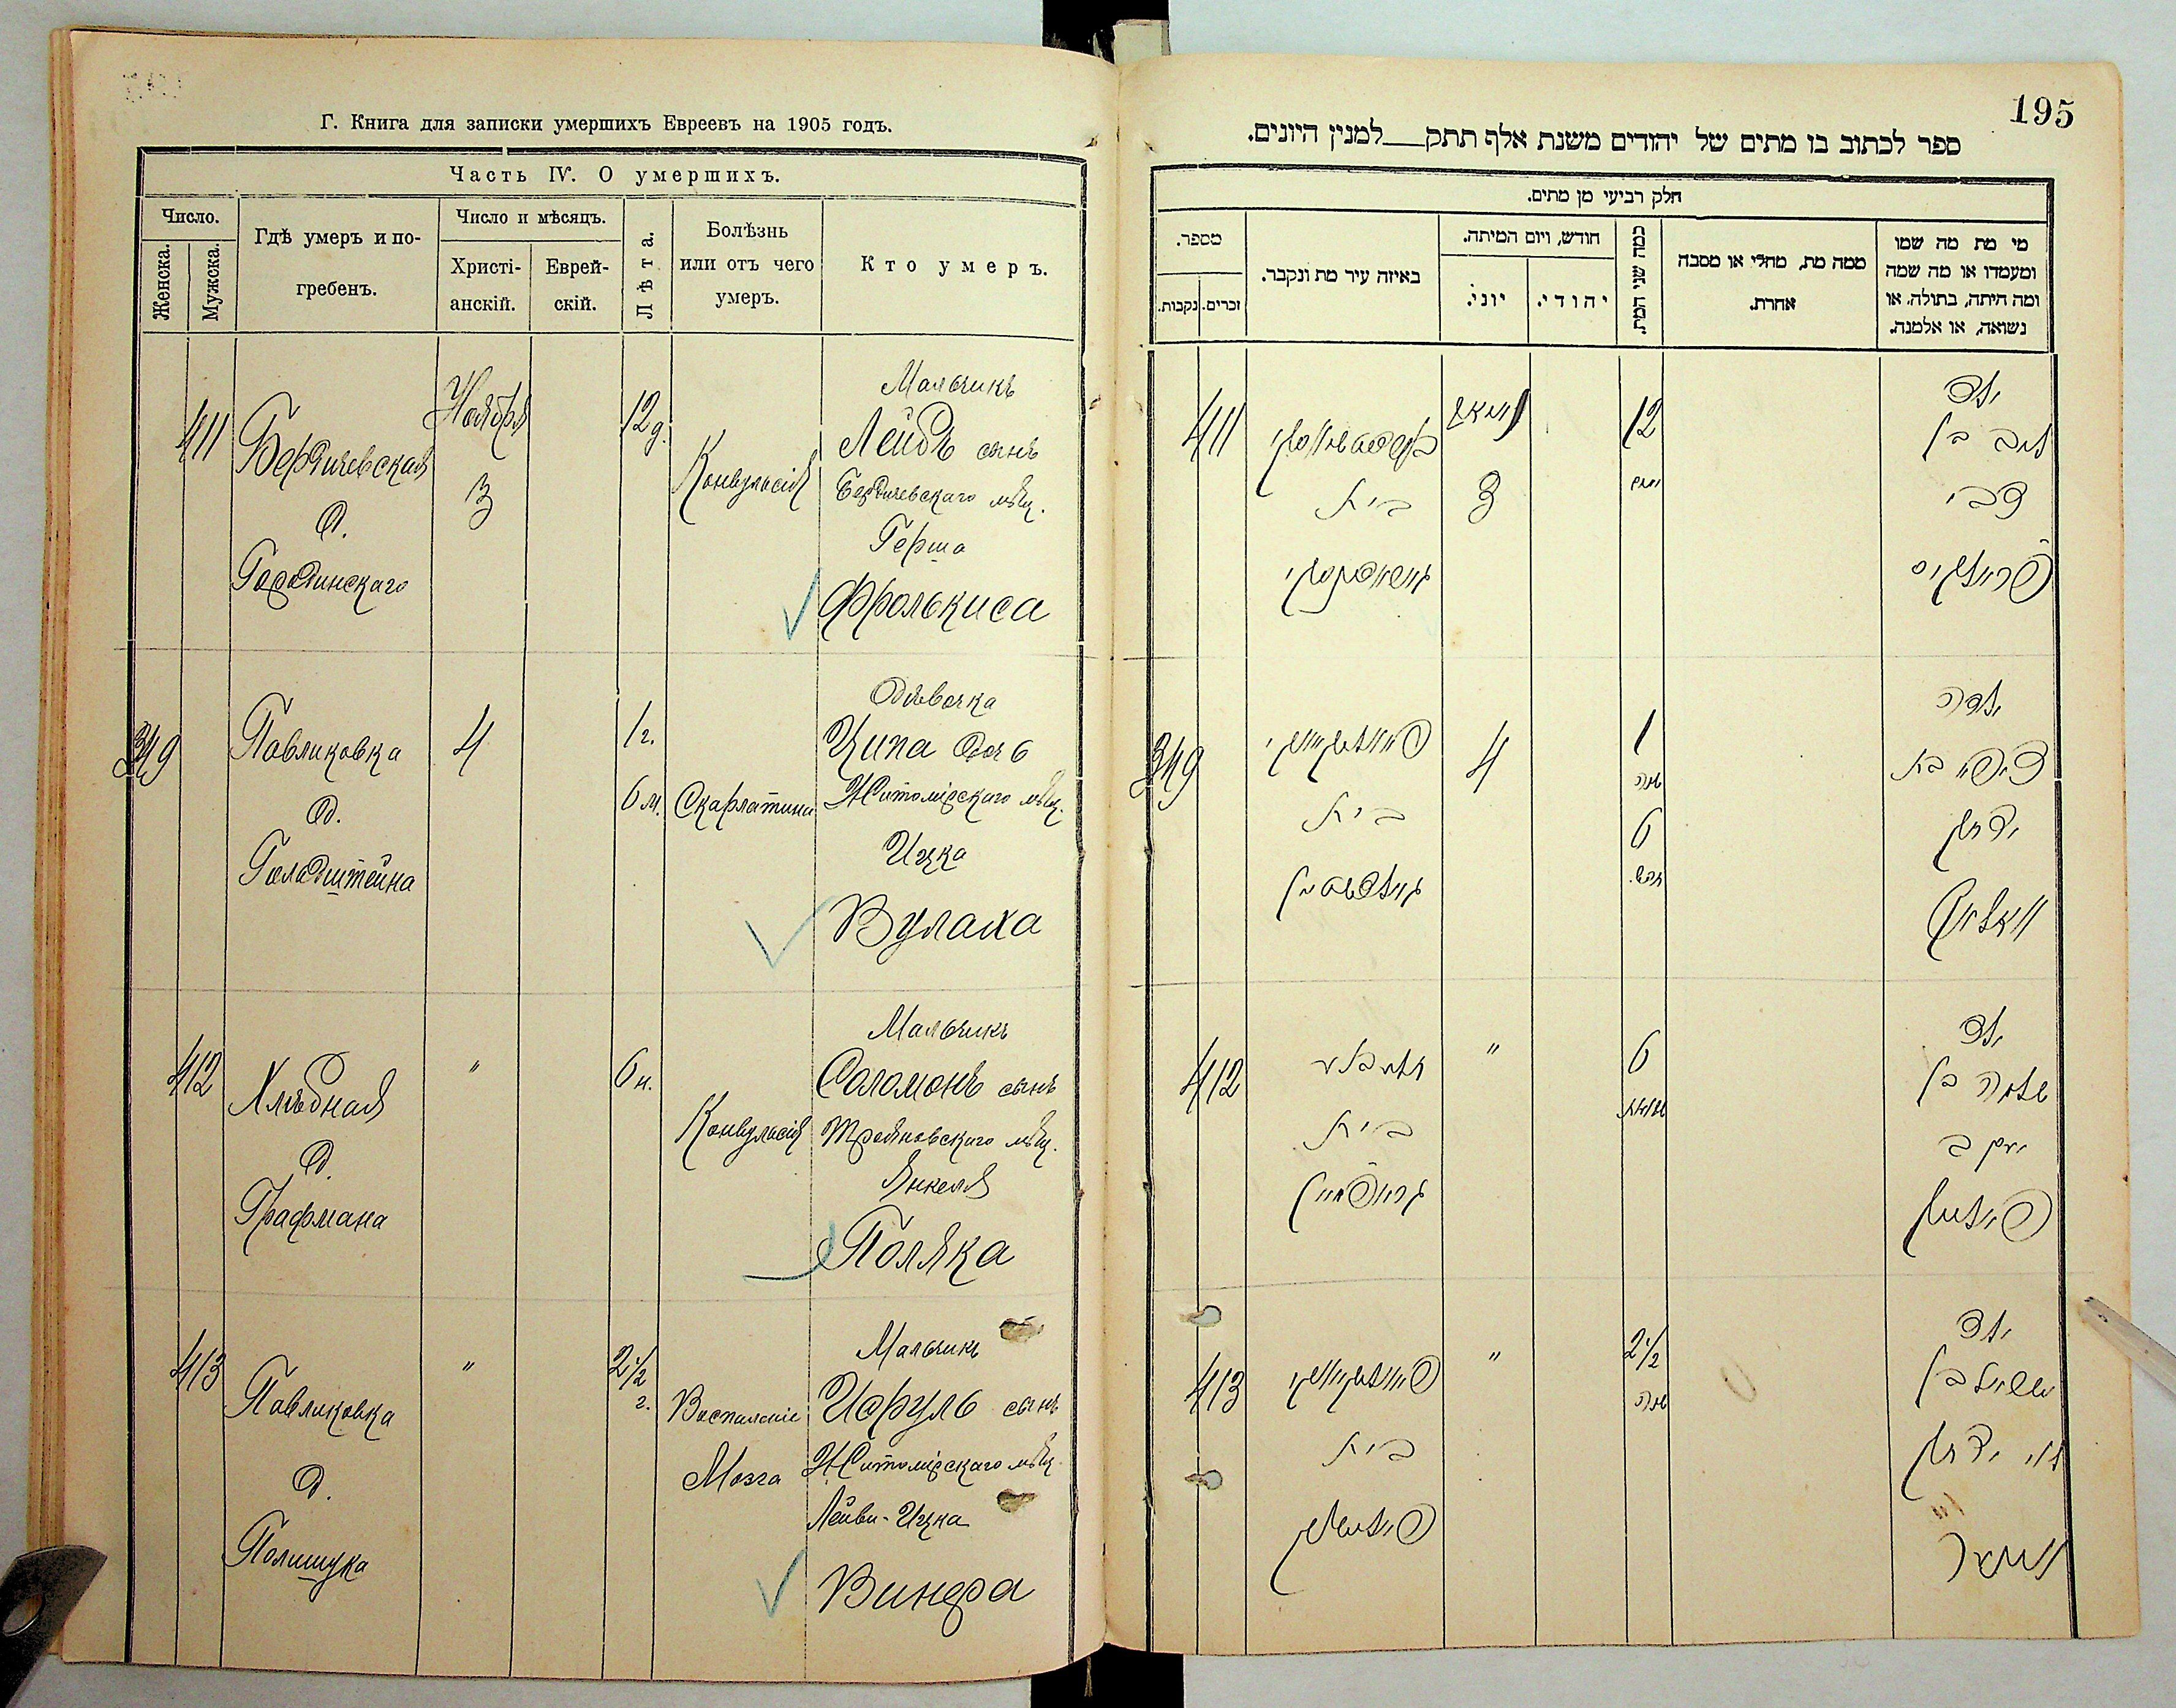 Г. Книга для записки умершихъ Евреевъ на 1905 годъ.
Часть IV. О умершихъ.
Число.
Женска.
Мужска.
Гдѣ умеръ и по-
гребенъ.
Число и мѣсяцъ.
Христі-
анскій.
Еврей-
скій.
Лѣта.
Болѣзнь
или отъ чего
умеръ.
Кто умеръ.
411
Бердичевская
д.
Городинскаго
Ноября
3
12 д.
Конвульсія
Мальчикъ
Лейбъ сынъ
Бердичевскаго мѣщ.
Герша
Фролькиса
349
Павликовка
д.
Гольдштейна
4
1 г.
6 м.
Скарлатина
Дѣвочка
Ципа дочь
Житомірскаго мѣщ.
Ицка
Вулаха
412
Хлѣбная
д.
Графмана
"
6 н.
Конвульсія
Мальчикъ
Соломонъ сынъ
Трояновскаго мѣщ.
Янкеля
Поляка
413
Павликовка
д.
Полищука
"
2 1/2
г.
Воспаленіе
Мозга
Мальчикъ
сынъ
Житомірскаго мѣщ.
Лейви-Ицка
195
ספר לכתוב בו מתים של יהודים משנת אלף תתק למנין היונים.
חלק רביעי מן מתים.
מי מת מה שמו
ומעמדו או מה שמה
ומה היתה, בתולה, או
נשואה, או אלמנה.
ממה מת, מחלי או מסבה
אחרת.
כמה שני המת.
חודש, ויום המיתה.
יהודי.
יוני.
באיזה עיר מת ונקבר.
מספר.
זכרים.
נקבות.
ילד
ליב בן
צבי
פראלקיס
12
ימים
3
בית
411
ילדה
ציפא בת
יצחק
וואלאך
1
שנה
6
חדש.
4
בית
גאלדשטיין
349
ילד
שלמה בן
יעקב
פאליאק
6
שבועות
"
בית
גראפמאן
412
ילד
לוי יצחק
2 1/2
שנה
"
בית
פאלישוק
413